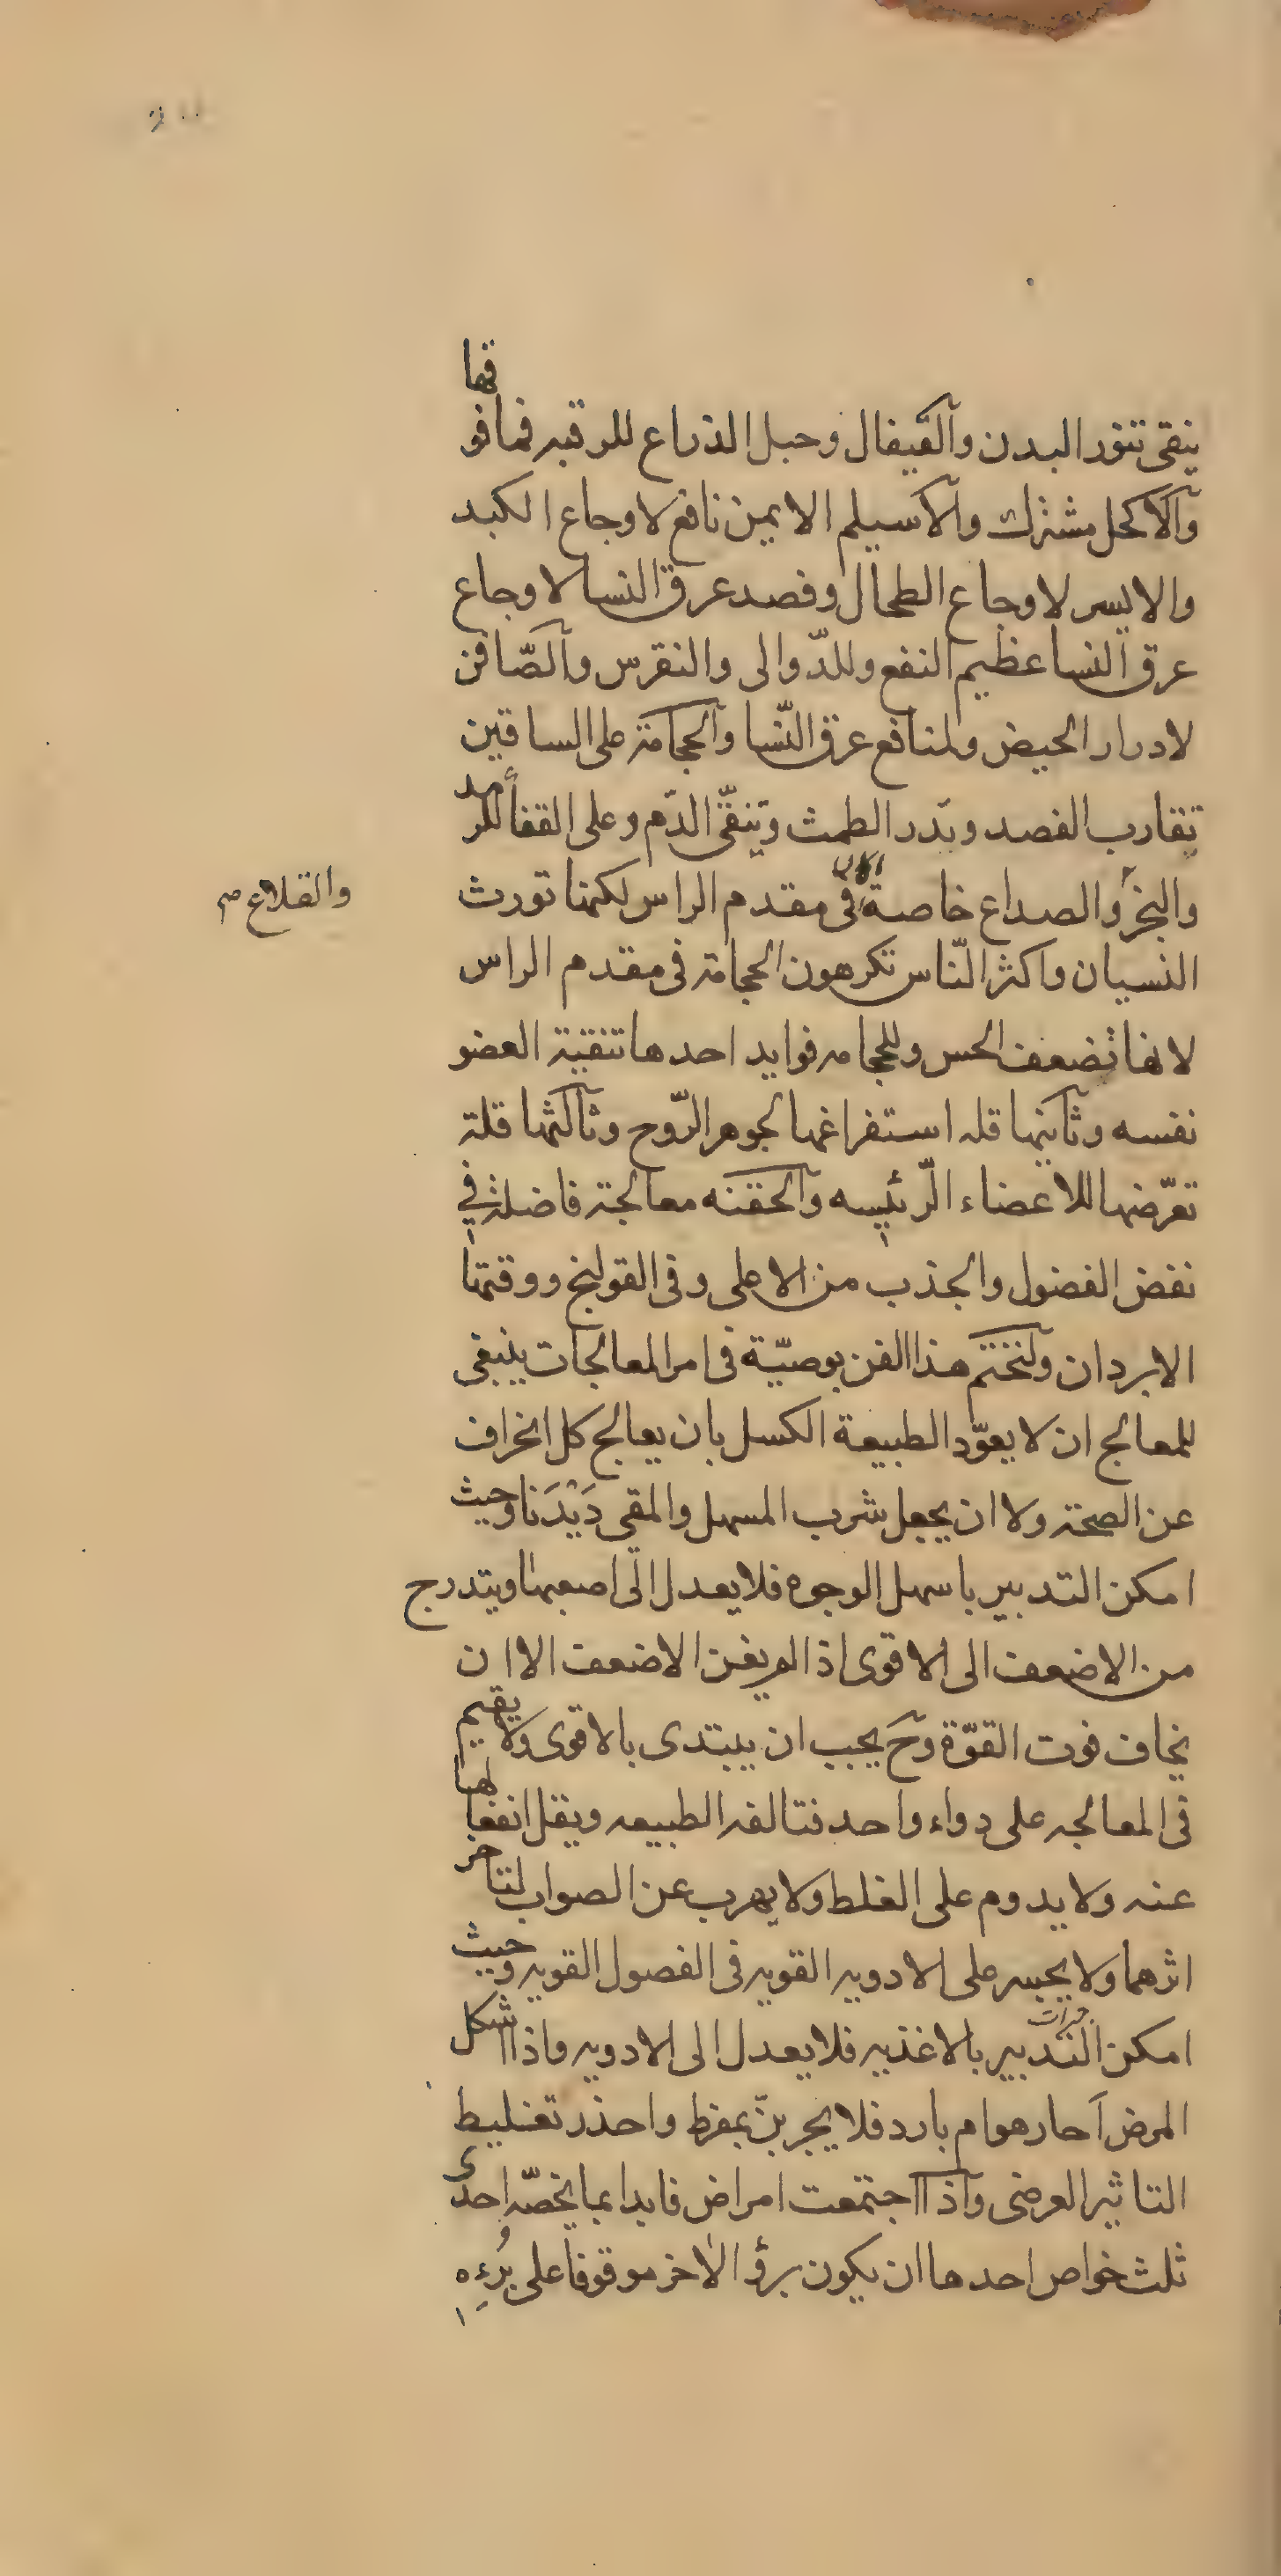 ينقى تنور البدن والقيفال وحبل الذراع للرقبه فما فوقها
والاكحل مشترك والاسيلم الايمن نافع لاوجاع الكبد
والايسر لاوجاع الطحال وفصد عرق النسا لاوجاع
عرق النسا عظيم النفع وللدّوالى والنقرس والصّافن
لادرار الحيض ولمنافع عرق النّسا والحجامة على الساقين
يقارب الفصد ويدر الطمث وينقّى الدّم وعلى القفا للرمد
والبخر والصداع خاصة فى مقدم الراس لكنها تورث
والقلاع صح
النسيان واكثر النّاس تكرهون الحجامة فى مقدم الراس
لانها تضعف الحس وللحجامه فوايد احدها تنقية العضو
نفسه وثانيها قله استفراغها لجوهر الرّوح وثالثها قلة
تعرّضها للاعضاء الرّئيسه والحقنه معالجة فاضلة في
نفض الفضول والجذب من الاعلى وفى القولنج ووقتها
الابردان ولنختم هذا الفن بوصيّة فى امر المعالجات ينبغى
للمعالج ان لا يعوّد الطبيعة الكسل بان يعالج كل انحراف
عن الصحة ولا ان يجعل شرب المسهل والمقى دَيْدَنا وحيث
امكن التدبير باسهل الوجوه فلا يعدل الى اصعبها ويتدرج
من الاضعف الى الاقوى اذا لم يغن الاضعف الا ان
يخاف فوت القوّة وح يجب ان يبتدى بالاقوى ولا يقيم
فى المعالجه على دواء واحد فتالفه الطبيعه ويقل انفعالها
عنه ولا يدوم على الغلط ولا يهرب عن الصواب لتاخر
اثرهما ولا يجسر على الادويه القويه فى الفصول القويه وحيث
امكن التدبير بالاغذيه فلا يعدل الى الادويه واذا اشكل
المرض احار هو ام بارد فلا يجربنّ بمفرط واحذر تغليط
التاثير العرضى واذا اجتمعت امراض فابدا بما يخصّه احدى
ثلث خواص احدها ان يكون برؤ الاخر موقوفا على بُرءِه